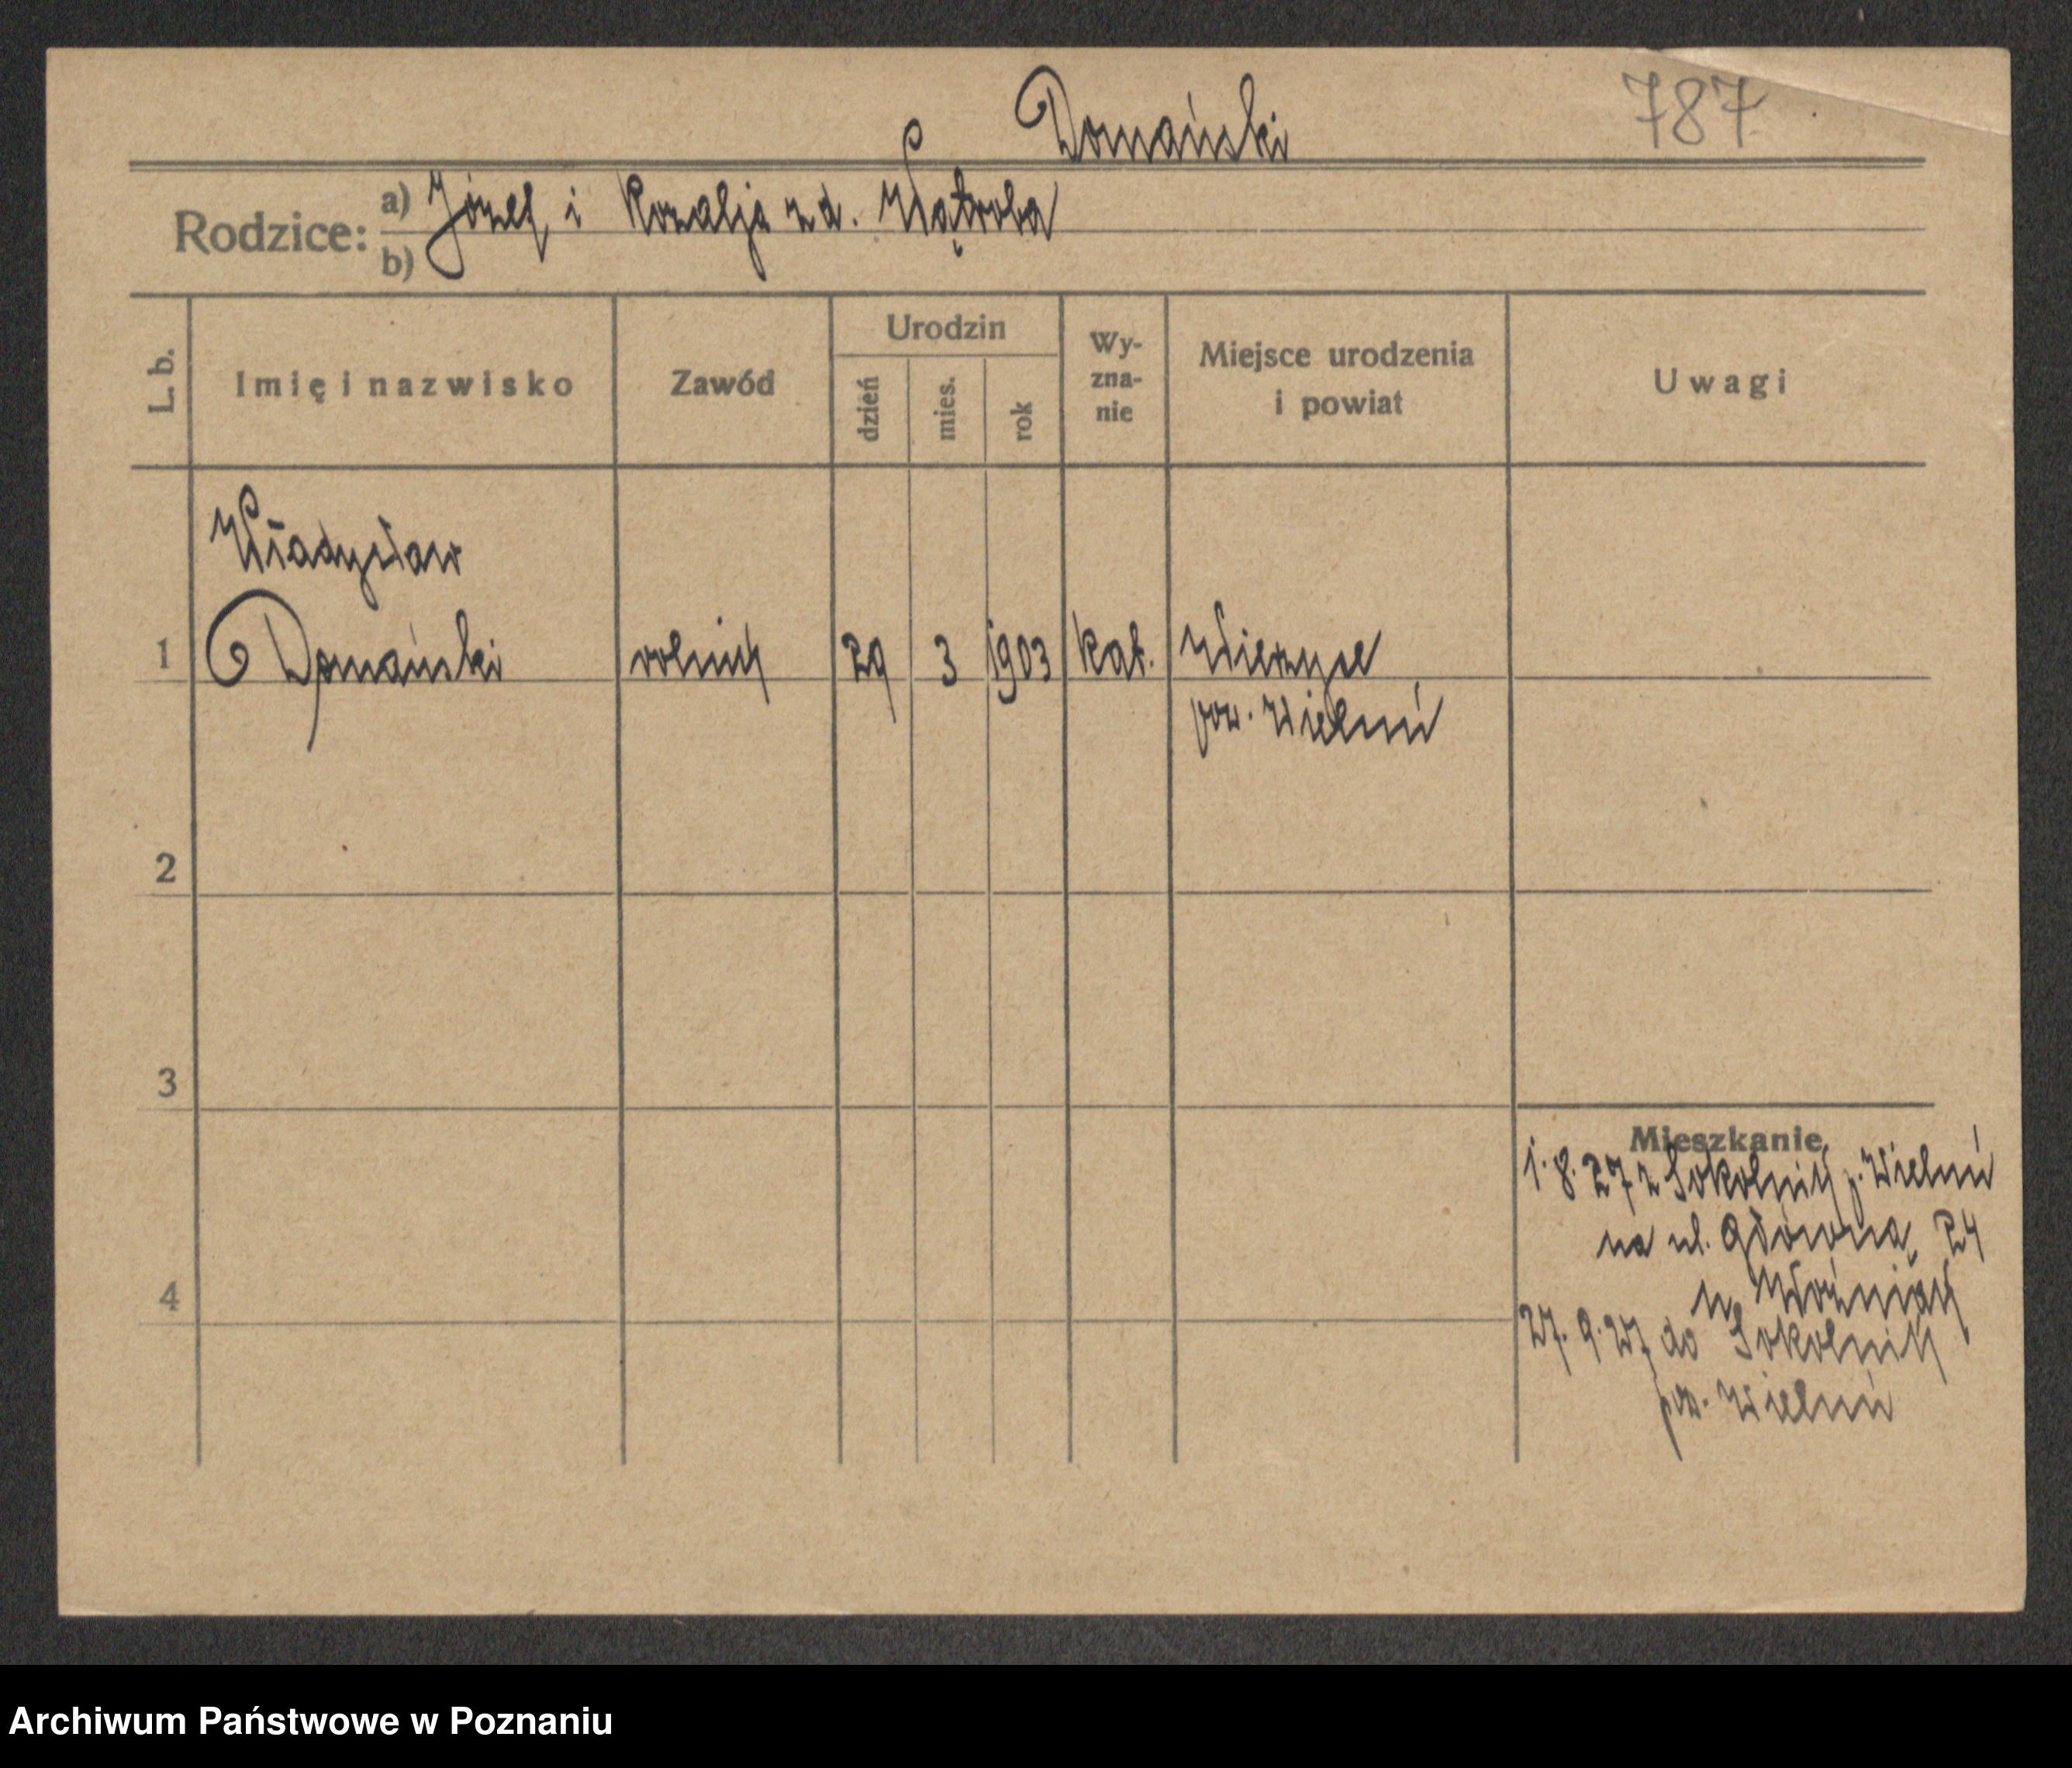 Domański 787
Rodzice: a) Józef i Rozalja z d. Wątroba
b)
L. b. Imię i nazwisko Zawód Urodzin dzień mies. rok Wy-zna-nie Miejsce urodzenia i powiat Uwagi
Władysław
1 Domański rolnik 29 3 1903 kat.
pow. Wieluń
2
3
Mieszkanie
1. 8. 27 z Sokolnik p. Wieluń
na ul. Główną 24
w
4
27. 9. 27 do Sokolnik
pow. Wieluń
Archiwum Państwowe w Poznaniu